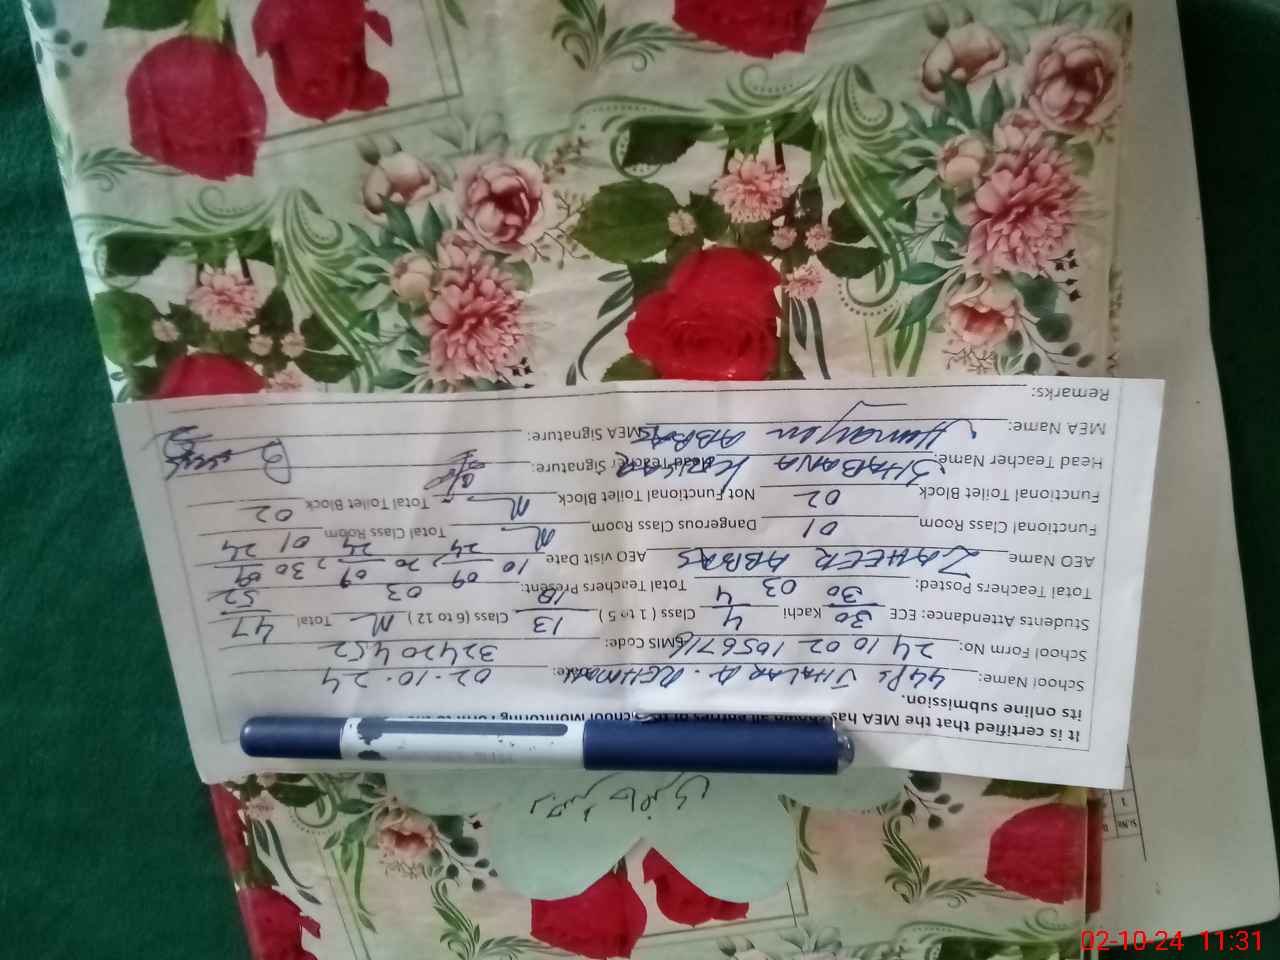 It is certified that the MEA has shown all entries of the School Monitoring Form to the
its online submission.
School Name: GGPS JHALAR A. REHMAN Date: 02.10.24
School Form No: 24 10 02 1056716 EMIS Code: 32420452
Students Attendance: ECE: 30/30 Kachi 4/4 Class (1 to 5) 13/18 Class (6 to 12) N Total 47/52
Total Teachers Posted: 03 Total Teachers Present: 03
AEO Name ZAHEER ABBAS AEO visit Date 10/09/24, 20/09/24, 30/09/24
Functional Class Room 01 Dangerous Class Room N Total Class Room 01
Functional Toilet Block 02 Not Functional Toilet Block N Total Toilet Block 02
Head Teacher Name: SHABANA Head Teacher Signature:
MEA Name: Humayon ABBAS MEA Signature:
Remarks:
رجسٹر حاضری
Sr.No
1
02-10-24 11:31